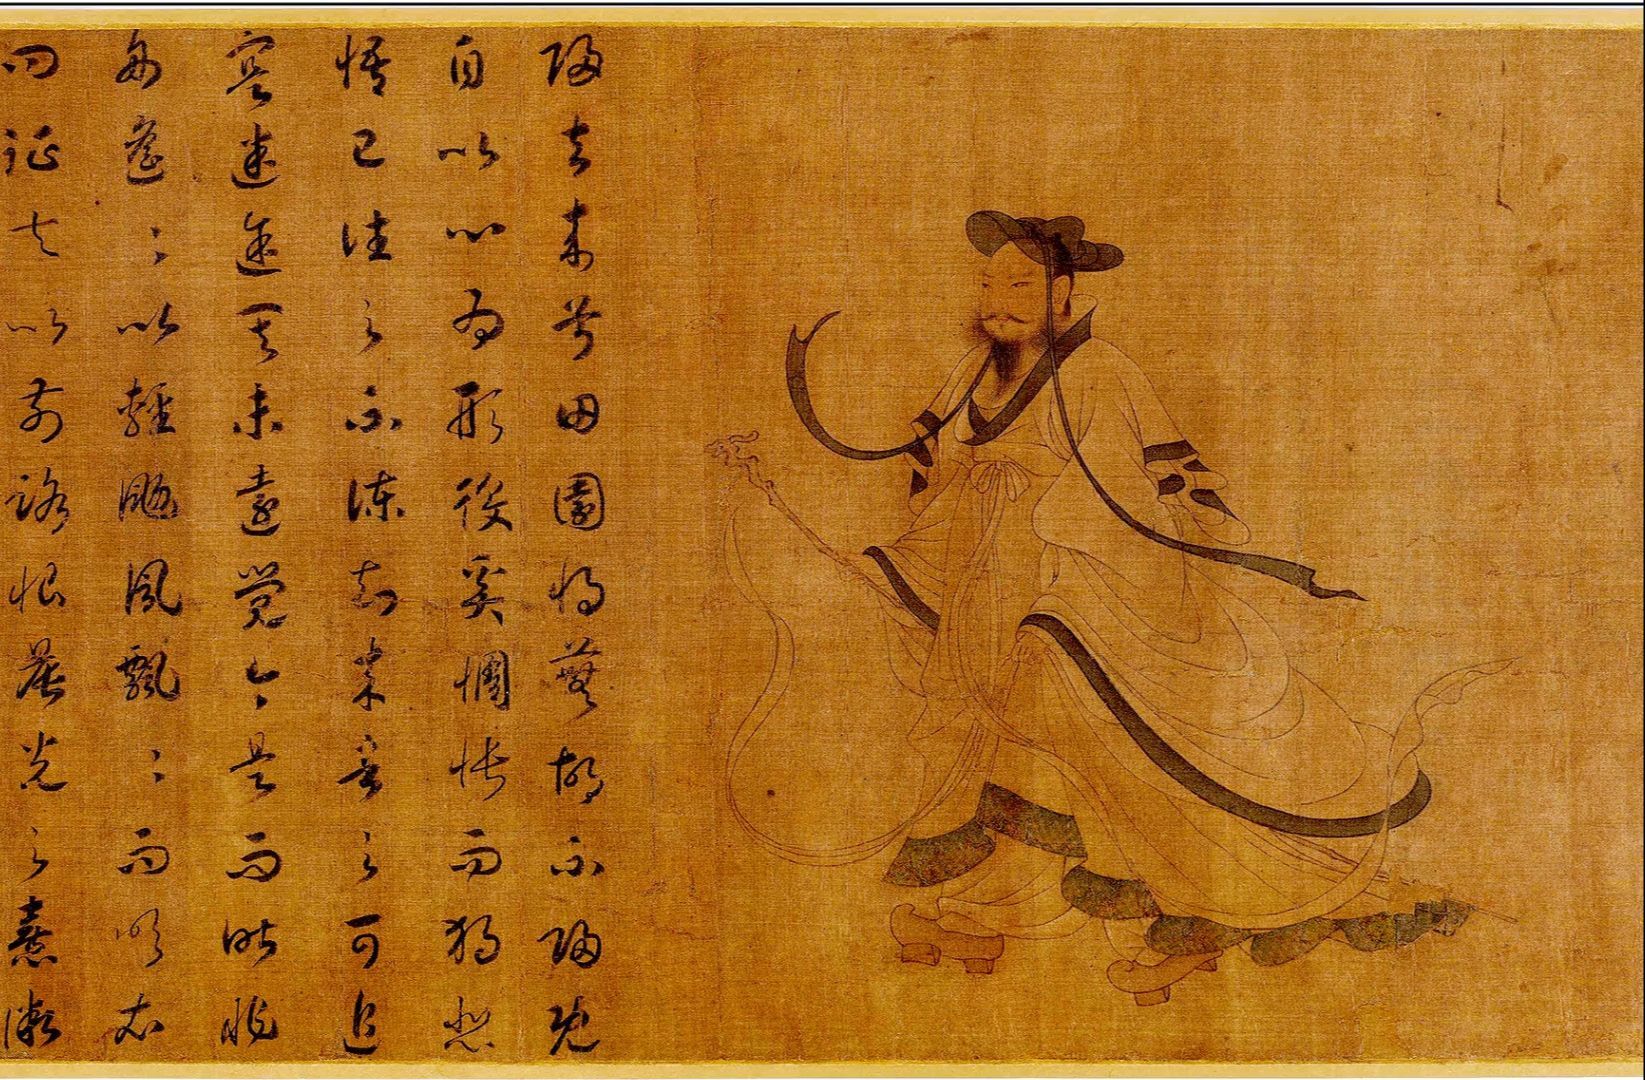 歸去來兮田園將蕪胡不歸既
自以心為形役奚惆悵而獨悲
悟已往之不諫知來者之可追
寔迷途其未遠覺今是而昨非
舟遙々以輕颺風飄々而吹衣
問征夫以前路恨晨光之熹微